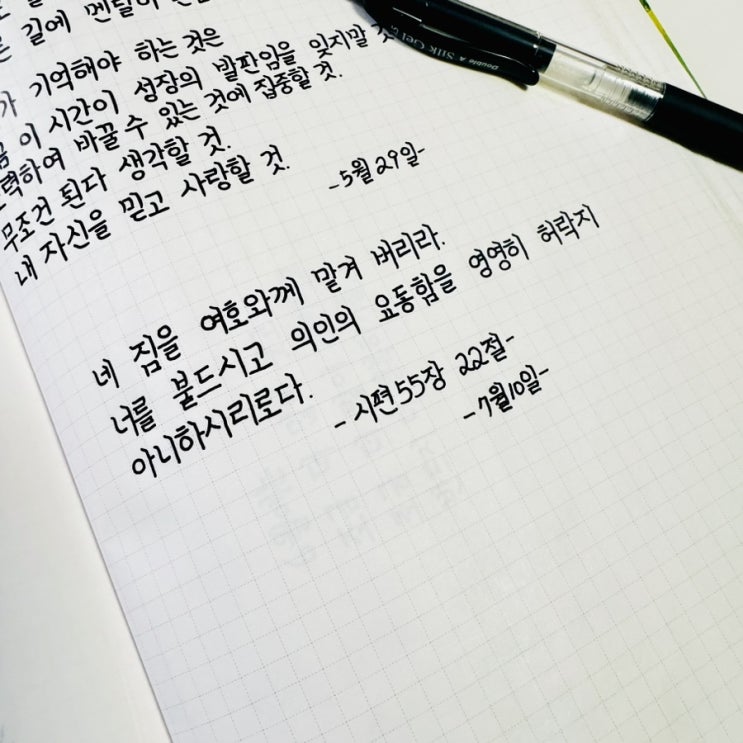 길에 멘탈이
기억해야 하는것은
이 시간이 성장의 발판임을 잊지말
하여 바꿀 수 있는 것에 집중할 것.
무조건 된다 생각할 것.
내 자신을 믿고 사랑할 것.
-5월 29일-
네 짐을 여호와께 맡겨 버리라.
너를 붙드시고 의인의 요동함을 영영히 허락지
아니하시리로다.
-시편 55장 22절-
-7월10일-
Double A Silk Gel